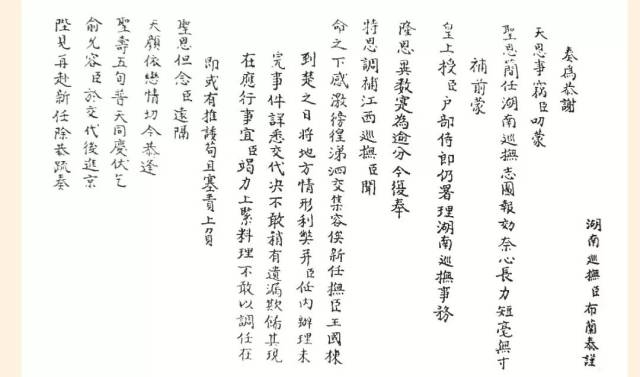 湖南巡撫臣布蘭泰謹
奏為恭謝
天恩事竊臣叨蒙
聖恩簡任湖南巡撫志圖報効奈心長力短毫無寸
補前蒙
皇上授臣戶部侍郎仍署理湖南巡撫事務
隆恩異數寔為逾分今復奉
特恩調補江西巡撫臣聞
命之下感激徬徨涕泗交集容俟新任撫臣王國棟
到楚之日將地方情形利弊并臣任內辦理未
完事件詳悉交代决不敢稍有遺漏欺飾其現
在應行事宜臣竭力上緊料理不敢以調任在
即或有推諉苟且塞責上負
聖恩但念臣遠隔
天顏依戀情切今恭逢
聖壽五旬普天同慶伏乞
俞允容臣於交代後進京
陛見再赴新任除恭疏奏